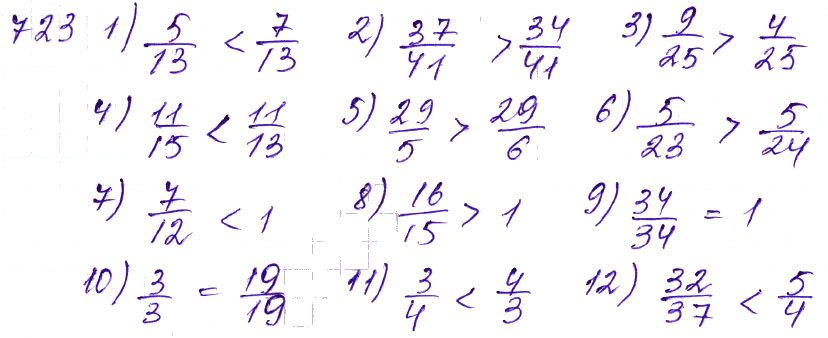 723 1) 5/13 < 7/13 2) 37/41 > 34/41 3) 9/25 > 4/25
4) 11/15 < 11/13 5) 29/5 > 29/6 6) 5/23 > 5/24
7) 7/12 < 1 8) 16/15 > 1 9) 34/34 = 1
10) 3/3 = 19/19 11) 3/4 < 4/3 12) 32/37 < 5/4